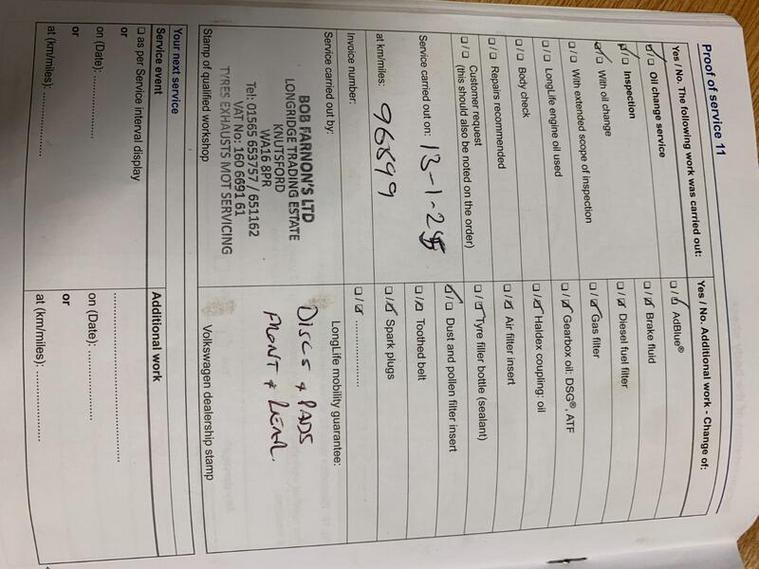 Proof of service 11
Yes / No. The following work was carried out:
☑/☐ Oil change service
☑/☐ Inspection
☑/☐ With oil change
☐/☐ With extended scope of inspection
☐/☐ LongLife engine oil used
☐/☐ Body check
☐/☐ Repairs recommended
☐/☐ Customer request
(this should also be noted on the order)
Service carried out on: 13-1-25
at km/miles: 96899
Invoice number:
Service carried out by:
BOB FARNON'S LTD
LONGRIDGE TRADING ESTATE
KNUTSFORD
WA16 8PR
Tel: 01565 653757 / 651162
VAT No: 160 6691 61
TYRES EXHAUSTS MOT SERVICING
Stamp of qualified workshop
Yes / No. Additional work - Change of:
☐/☑ AdBlue®
☐/☑ Brake fluid
☐/☑ Diesel fuel filter
☐/☑ Gas filter
☐/☑ Gearbox oil: DSG®, ATF
☐/☑ Haldex coupling: oil
☐/☑ Air filter insert
☐/☑ Tyre filler bottle (sealant)
☑/☐ Dust and pollen filter insert
☐/☑ Toothed belt
☐/☑ Spark plugs
☐/☑ ....................
LongLife mobility guarantee:
DISCS & PADS
FRONT & REAR.
Volkswagen dealership stamp
Your next service
Service event
☐ as per Service interval display
or
on (Date): ....................
or
at (km/miles): ....................
Additional work
....................
on (Date): ....................
or
at (km/miles): ....................